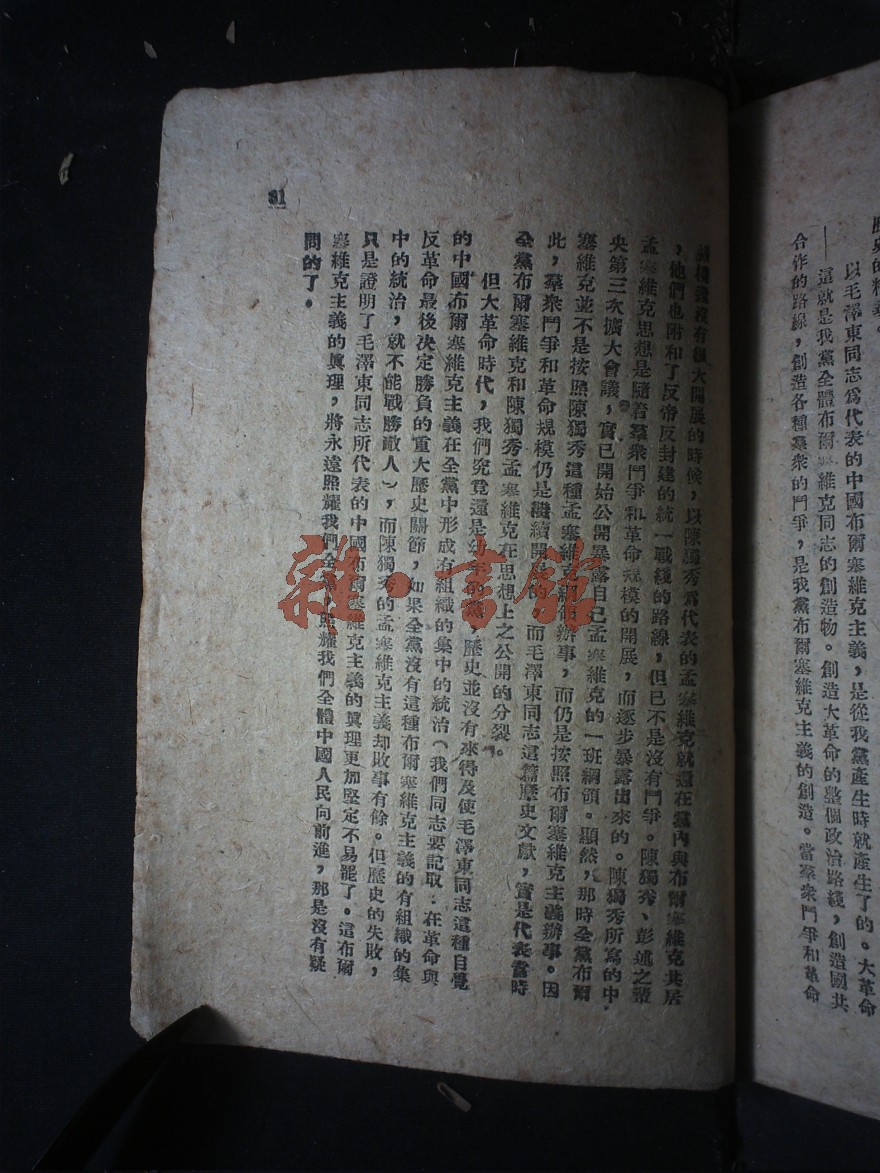 歷史的精華。
以毛澤東同志爲代表的中國布爾塞維克主義，是從我黨產生時就產生了的。大革命
——這就是我黨全體布爾塞維克同志的創造物。創造大革命的整個政治路綫，創造國共
合作的路線，創造各種羣衆的鬥爭，是我黨布爾塞維克主義的創造。當羣衆鬥爭和革命
規模還沒有很大開展的時候，以陳獨秀爲代表的孟塞維克就還在黨內與布爾塞維克共居
，他們也附和了反帝反封建的統一戰綫的路線，但已不是沒有鬥爭。陳獨秀、彭述之輩
孟塞維克思想是隨着羣衆鬥爭和革命規模的開展，而逐步暴露出來的。陳獨秀所寫的中
央第三次擴大會議，實已開始公開暴露自己孟塞維克的一班綱領。顯然，那時全黨布爾
塞維克並不是按照陳獨秀這種孟塞維克綱領辦事，而仍是按照布爾塞維克主義辦事。因
此，羣衆鬥爭和革命規模仍是繼續開展的，而毛澤東同志這篇歷史文獻，實是代表當時
全黨布爾塞維克和陳獨秀孟塞維克在思想上之公開的分裂。
但大革命時代，我們究竟還是幼年的黨，歷史並沒有來得及使毛澤東同志這種自覺
的中國布爾塞維克主義在全黨中形成有組織的集中的統治（我們同志要記取：在革命與
反革命最後決定勝負的重大歷史關節，如果全黨沒有這種布爾塞維克主義的有組織的集
中的統治，就不能戰勝敵人），而陳獨秀的孟塞維克主義却敗事有餘。但歷史的失敗，
只是證明了毛澤東同志所代表的中國布爾塞維克主義的眞理更加堅定不易罷了。這布爾
塞維克主義的眞理，將永遠照耀我們全黨，照耀我們全體中國人民向前進，那是沒有疑
問的了。
31
雜·書館